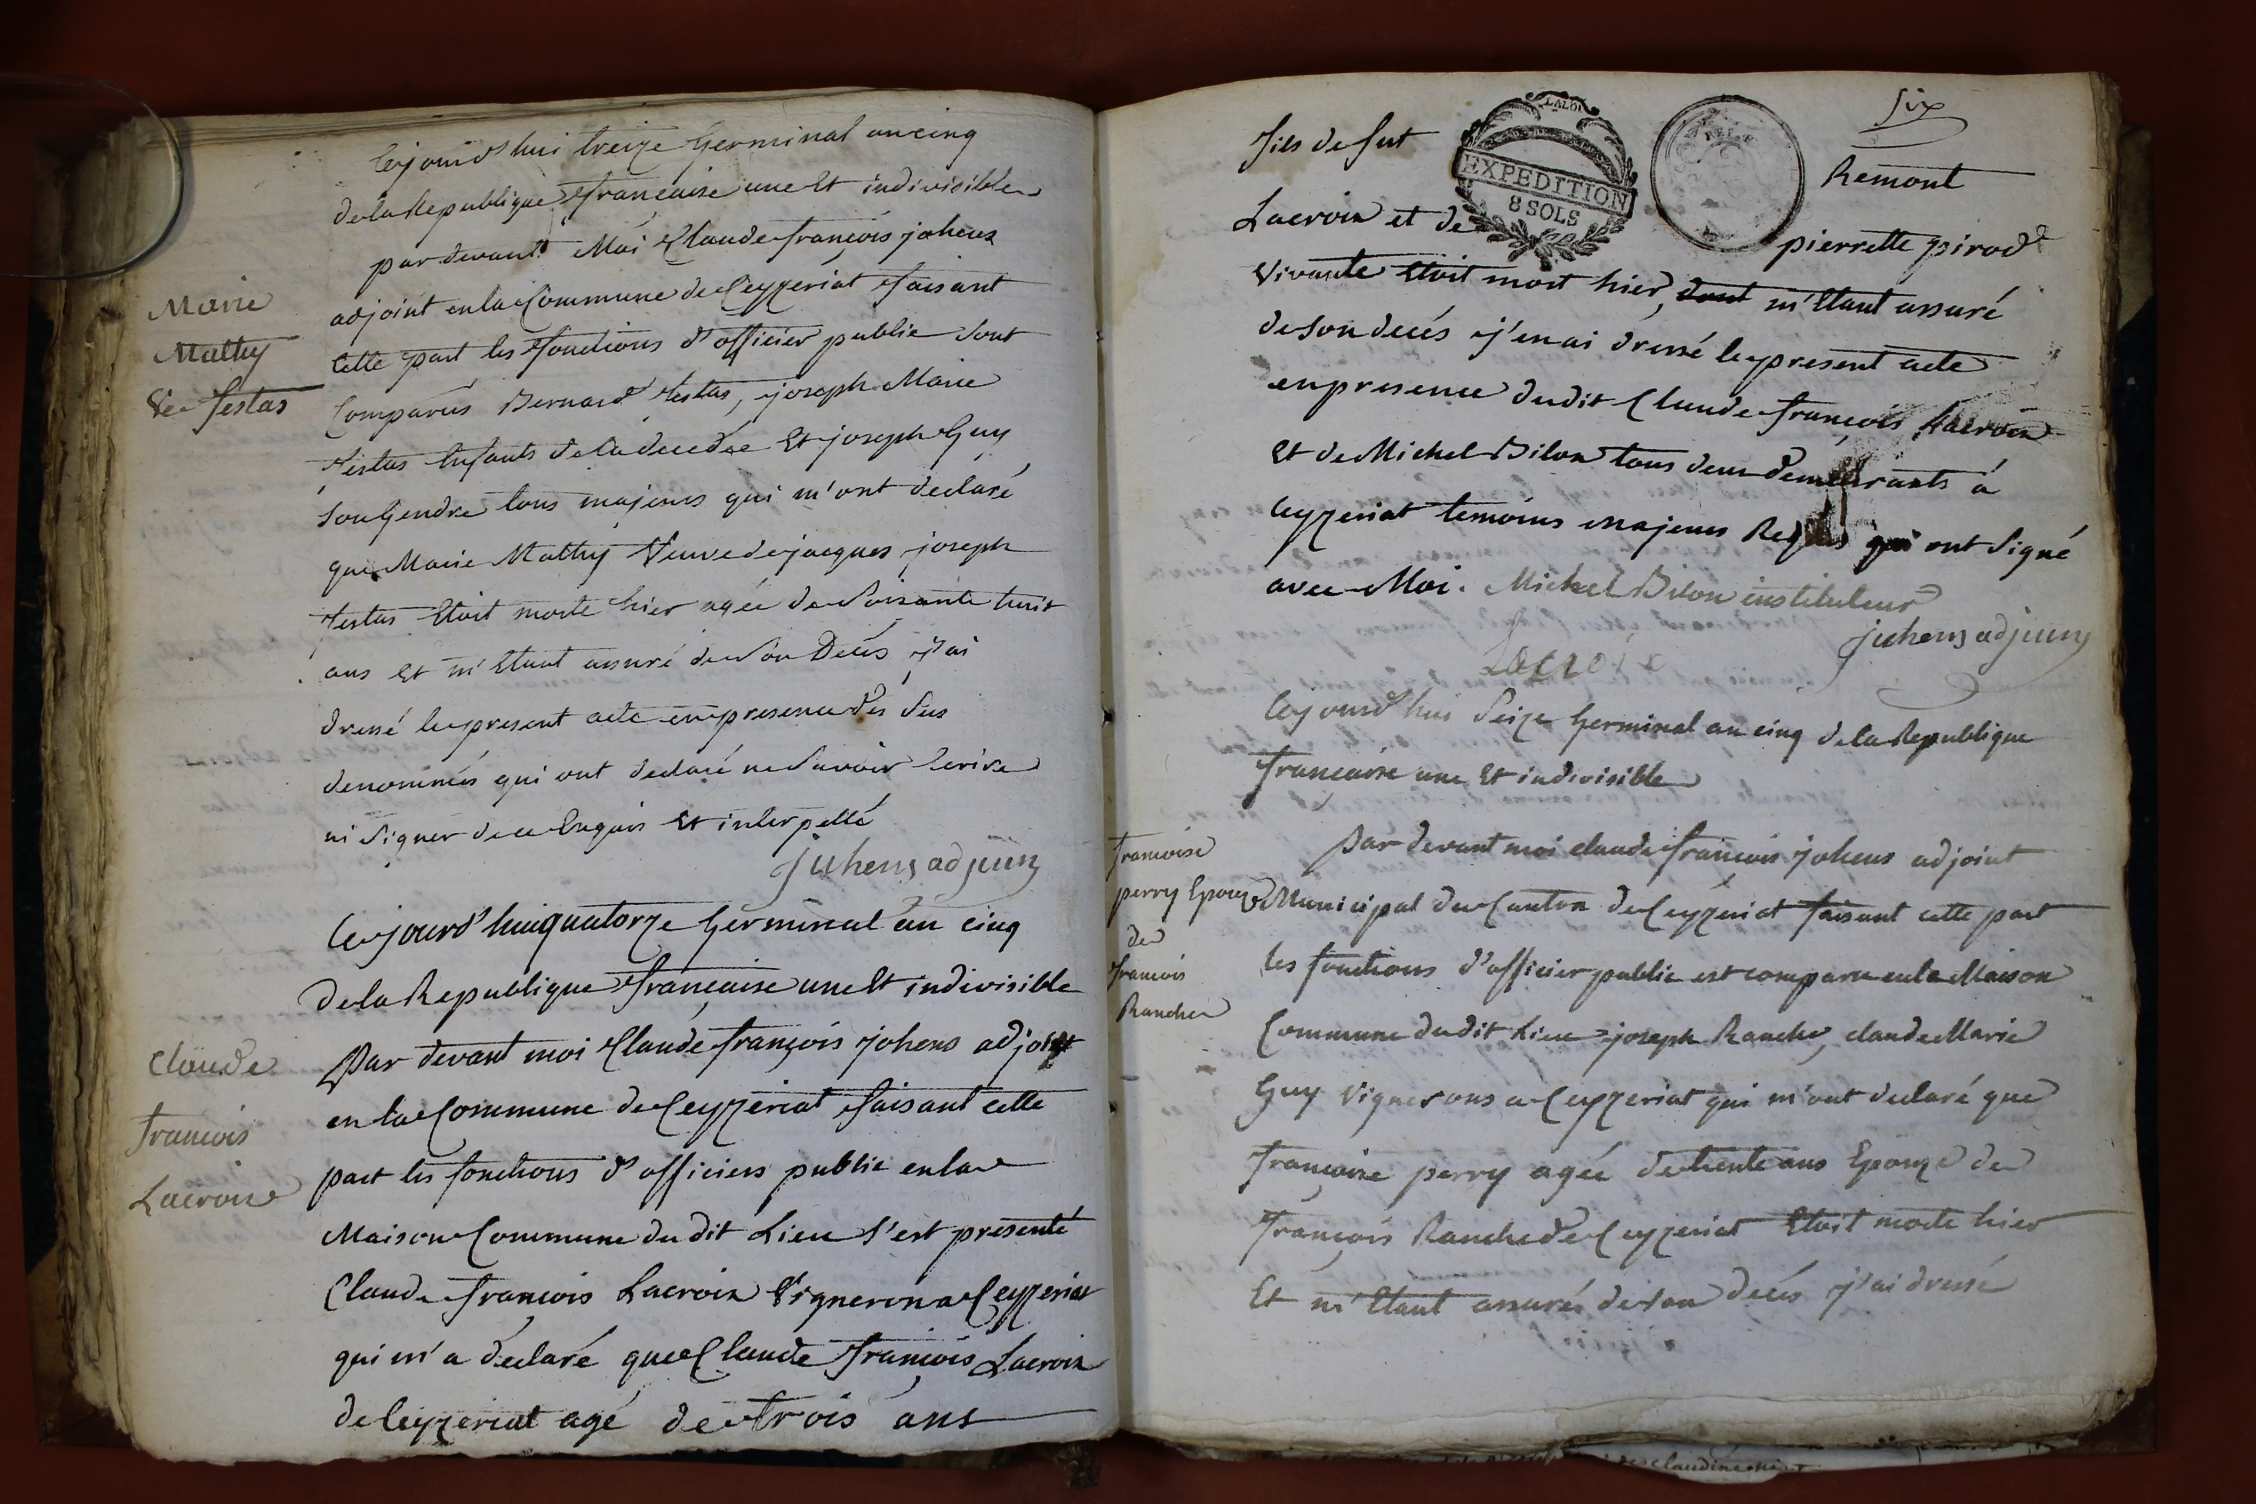 Cejourd'hui treize Germinal an cinq
de la Republique francaise une et indivisible
par devant Moi Claude françois johens
adjoint en la Commune de Ceyzeriat faisant
Cette part les fonctions d'officier public sont
Comparus Bernard Testas, joseph Marie
Testas Enfants de la decedée Et joseph Guy
son Gendre tous majeurs qui m'ont declaré
que Marie Mathy Veuve de jacques joseph
Testas Etoit morte hier agée de soixante huit
ans Et m'Etant assuré de son Decés j'ai
dressé le present acte en presence des sus
denommés qui ont declaré ne savoir Ecrire
ni signer de ce Enquis Et interpellé
juhens adjuin
Marie
Mathy
Ve Testas
Cejourd'hui quatorze Germinal an cinq
De la Republique francaise une Et indivisible
Par devant moi Claude françois johens adjoint
en la Commune de Ceyzeriat faisant cette
part les fonctions d'officiers public en la
Maison Commune du dit Lieu s'est presenté
Claude françois Lacroix Vigneron a Ceyzeriat
qui m'a declaré que Claude françois Lacroix
de Ceyzeriat agé de trois ans
Claude
francois
Lacroix
six
fils de fut Remont
Lacroix et de pierrette pirod
Vivante Etoit mort hier, dont m'Etant assuré
de son decés j'en ai dressé le present acte
en presence du dit Claude françois Lacroix
Et de Michel Bilon tous deux demeurants à
Ceyzeriat temoins majeurs Requis qui ont signé
avec Moi. Michel Bilon instituteur
juhens adjuin
Lacroi
LA LOI
EXPEDITION
8 SOLS
Cejourd'hui seize Germinal an cinq de la Republique
francaise une Et indivisible
Par devant moi claude francois johens adjoint
Municipal du Canton de Ceyzeriat faisant cette part
les fonctions d'officier public est comparu en la Maison
Commune du dit Lieu joseph Ranche, claude Marie
Guy Vignerons a Ceyzeriat qui m'ont declaré que
françoise perry agée de trente ans Epouze de
françois Ranche de Ceyzeriat Etoit morte hier
Et m'Etant assuré de son decés j'ai dressé
francoise
perry Epouze
de
francois
Ranche